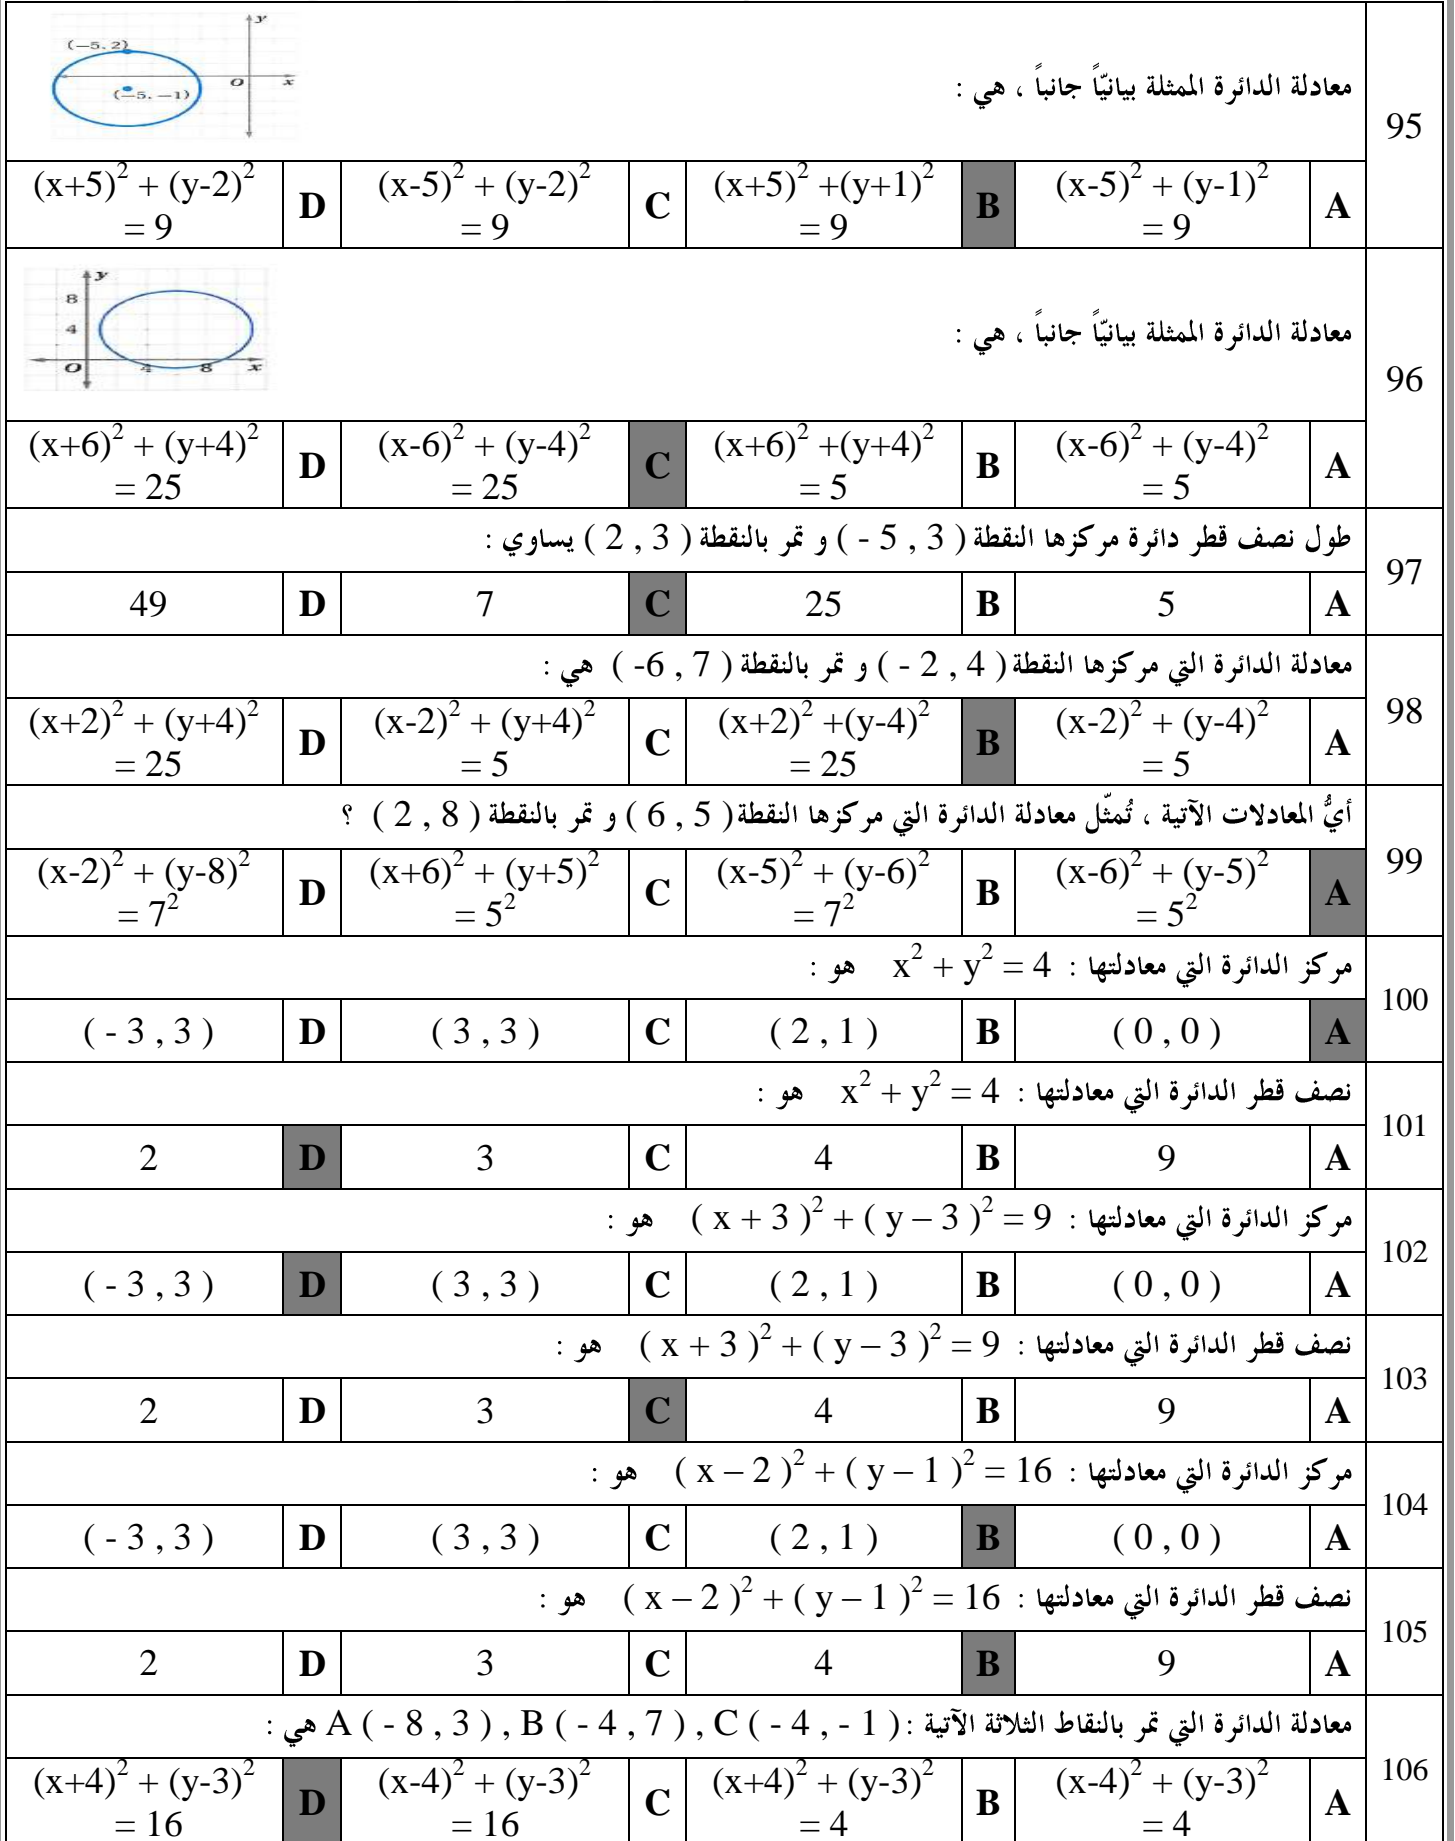 95
معادلة الدائرة الممثلة بيانيّاً جانباً ، هي :
y
(−5, 2)
O
x
(−5, −1)
A
(x-5)² + (y-1)²
= 9
B
(x+5)² +(y+1)²
= 9
C
(x-5)² + (y-2)²
= 9
D
(x+5)² + (y-2)²
= 9
96
معادلة الدائرة الممثلة بيانيّاً جانباً ، هي :
y
8
4
O
4
8
x
A
(x-6)² + (y-4)²
= 5
B
(x+6)² +(y+4)²
= 5
C
(x-6)² + (y-4)²
= 25
D
(x+6)² + (y+4)²
= 25
97
طول نصف قطر دائرة مركزها النقطة ( - 5 , 3 ) و تمر بالنقطة ( 2 , 3 ) يساوي :
A
5
B
25
C
7
D
49
98
معادلة الدائرة التي مركزها النقطة ( - 2 , 4 ) و تمر بالنقطة ( -6 , 7 ) هي :
A
(x-2)² + (y-4)²
= 5
B
(x+2)² +(y-4)²
= 25
C
(x-2)² + (y+4)²
= 5
D
(x+2)² + (y+4)²
= 25
99
أيُّ المعادلات الآتية ، تُمثّل معادلة الدائرة التي مركزها النقطة ( 6 , 5 ) و تمر بالنقطة ( 2 , 8 ) ؟
A
(x-6)² + (y-5)²
= 5²
B
(x-5)² + (y-6)²
= 7²
C
(x+6)² + (y+5)²
= 5²
D
(x-2)² + (y-8)²
= 7²
100
مركز الدائرة التي معادلتها : x² + y² = 4 هو :
A
( 0 , 0 )
B
( 2 , 1 )
C
( 3 , 3 )
D
( - 3 , 3 )
101
نصف قطر الدائرة التي معادلتها : x² + y² = 4 هو :
A
9
B
4
C
3
D
2
102
مركز الدائرة التي معادلتها : ( x + 3 )² + ( y – 3 )² = 9 هو :
A
( 0 , 0 )
B
( 2 , 1 )
C
( 3 , 3 )
D
( - 3 , 3 )
103
نصف قطر الدائرة التي معادلتها : ( x + 3 )² + ( y – 3 )² = 9 هو :
A
9
B
4
C
3
D
2
104
مركز الدائرة التي معادلتها : ( x – 2 )² + ( y – 1 )² = 16 هو :
A
( 0 , 0 )
B
( 2 , 1 )
C
( 3 , 3 )
D
( - 3 , 3 )
105
نصف قطر الدائرة التي معادلتها : ( x – 2 )² + ( y – 1 )² = 16 هو :
A
9
B
4
C
3
D
2
106
معادلة الدائرة التي تمر بالنقاط الثلاثة الآتية : A ( - 8 , 3 ) , B ( - 4 , 7 ) , C ( - 4 , - 1 ) هي :
A
(x-4)² + (y-3)²
= 4
B
(x+4)² + (y-3)²
= 4
C
(x-4)² + (y-3)²
= 16
D
(x+4)² + (y-3)²
= 16